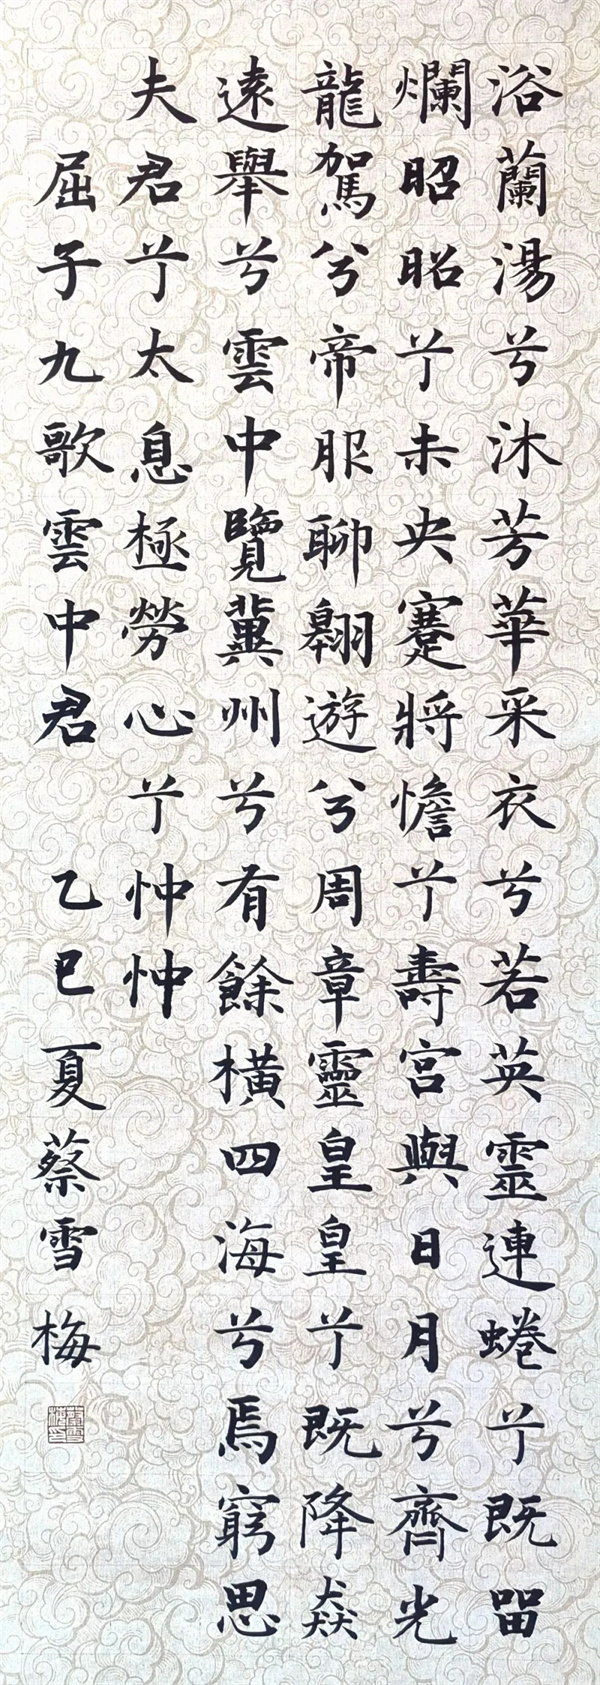 浴蘭湯兮沐芳華采衣兮若英靈連蜷兮既留
爛昭昭兮未央蹇將憺兮壽宮與日月兮齊光
龍駕兮帝服聊翱遊兮周章靈皇皇兮既降猋
遠舉兮雲中覽冀州兮有餘橫四海兮焉窮思
夫君兮太息極勞心兮忡忡
屈子九歌雲中君 乙巳夏蔡雪梅
蔡雪梅印